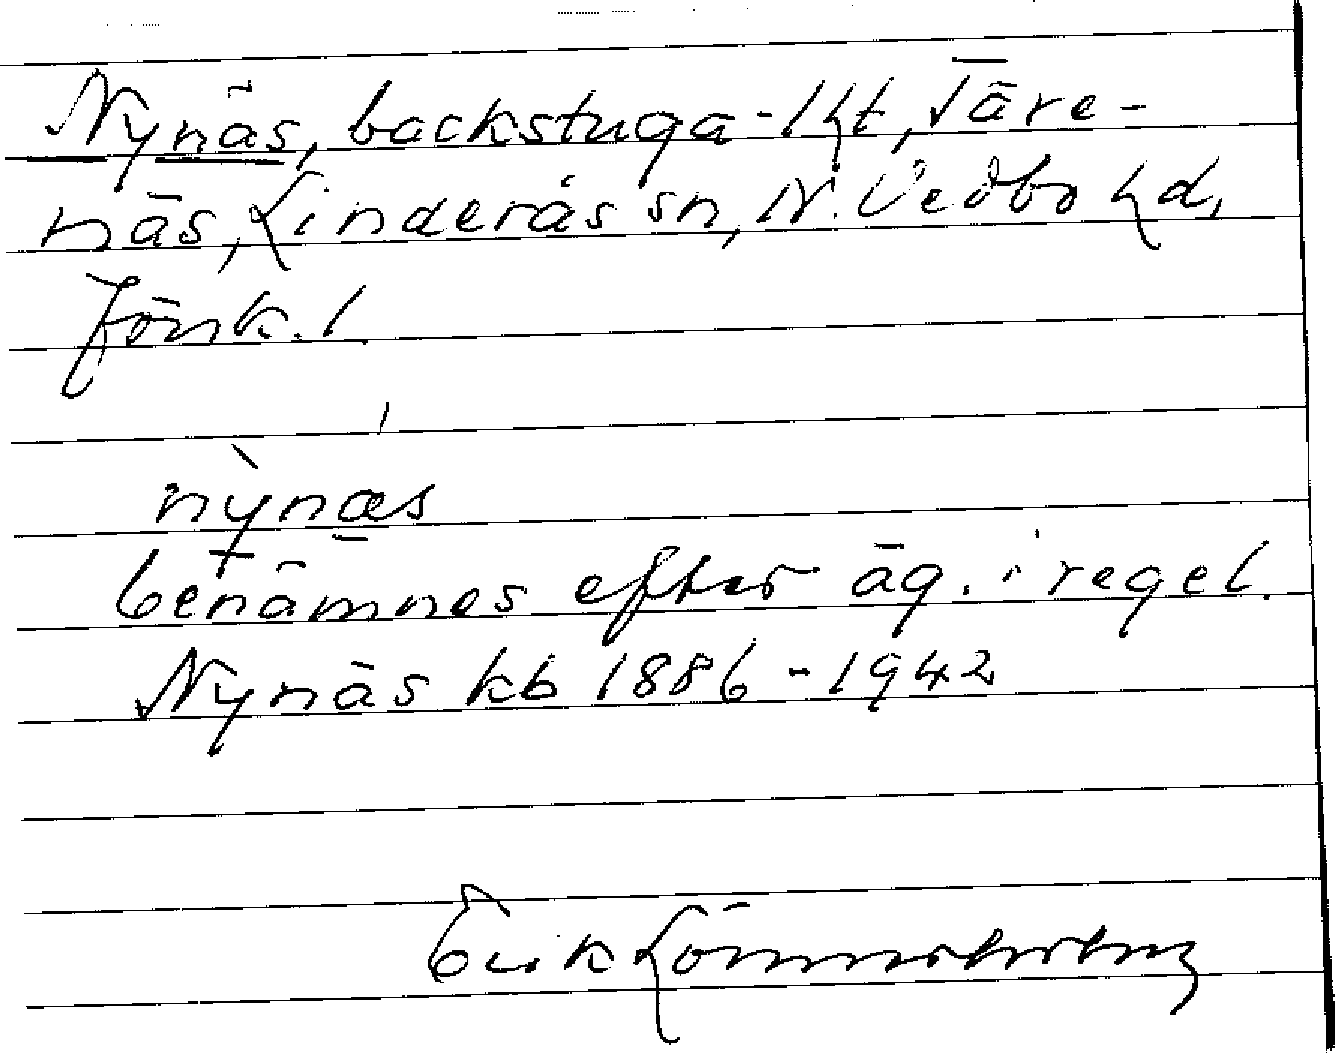 Nynäs, backstuga-lht, Täre-
näs, Linderås sn, N. Vedbo hd,
Jönk. l
nỳnæs
benämnes efter äg. i regel.
Nynäs kb 1886-1942
Erik